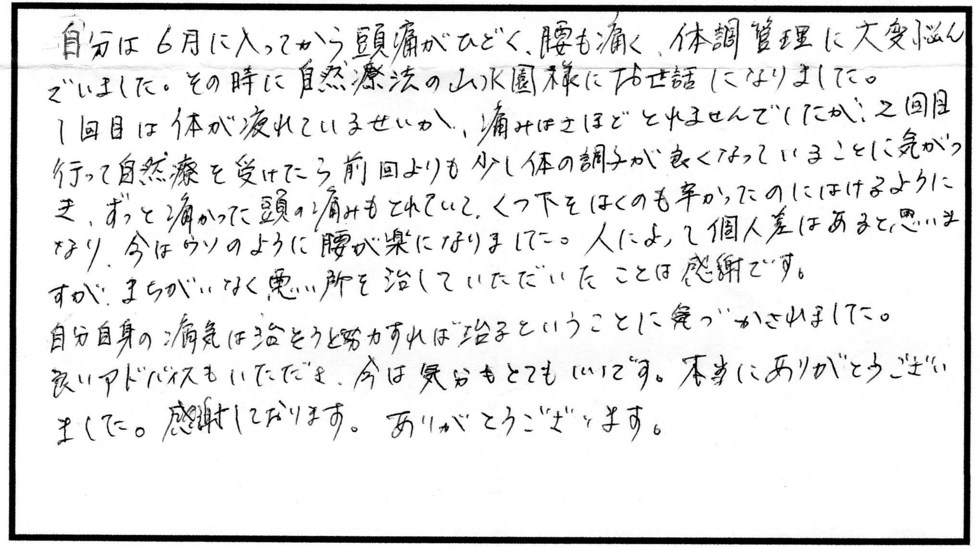 自分は6月に入ってから頭痛がひどく、腰も痛く、体調管理に大変悩ん
でいました。その時に自然療法の山水園様にお世話になりました。
1回目は体が疲れているせいか、痛みはさほどとれませんでしたが、2回目
行って自然療を受けたら前回よりも少し体の調子が良くなっていることに気がつ
き、ずっと痛かった頭の痛みもとれていて、くつ下をはくのも辛かったのにはけるように
なり、今はウソのように腰が楽になりました。人によって個人差はあると思いま
すが、まちがいなく悪い所を治していただいたことは感謝です。
自分自身の病気は治そうと努力すれば治るということに気づかされました。
良いアドバイスもいただき、今は気分もとてもいいです。本当にありがとうござい
ました。感謝しております。ありがとうございます。